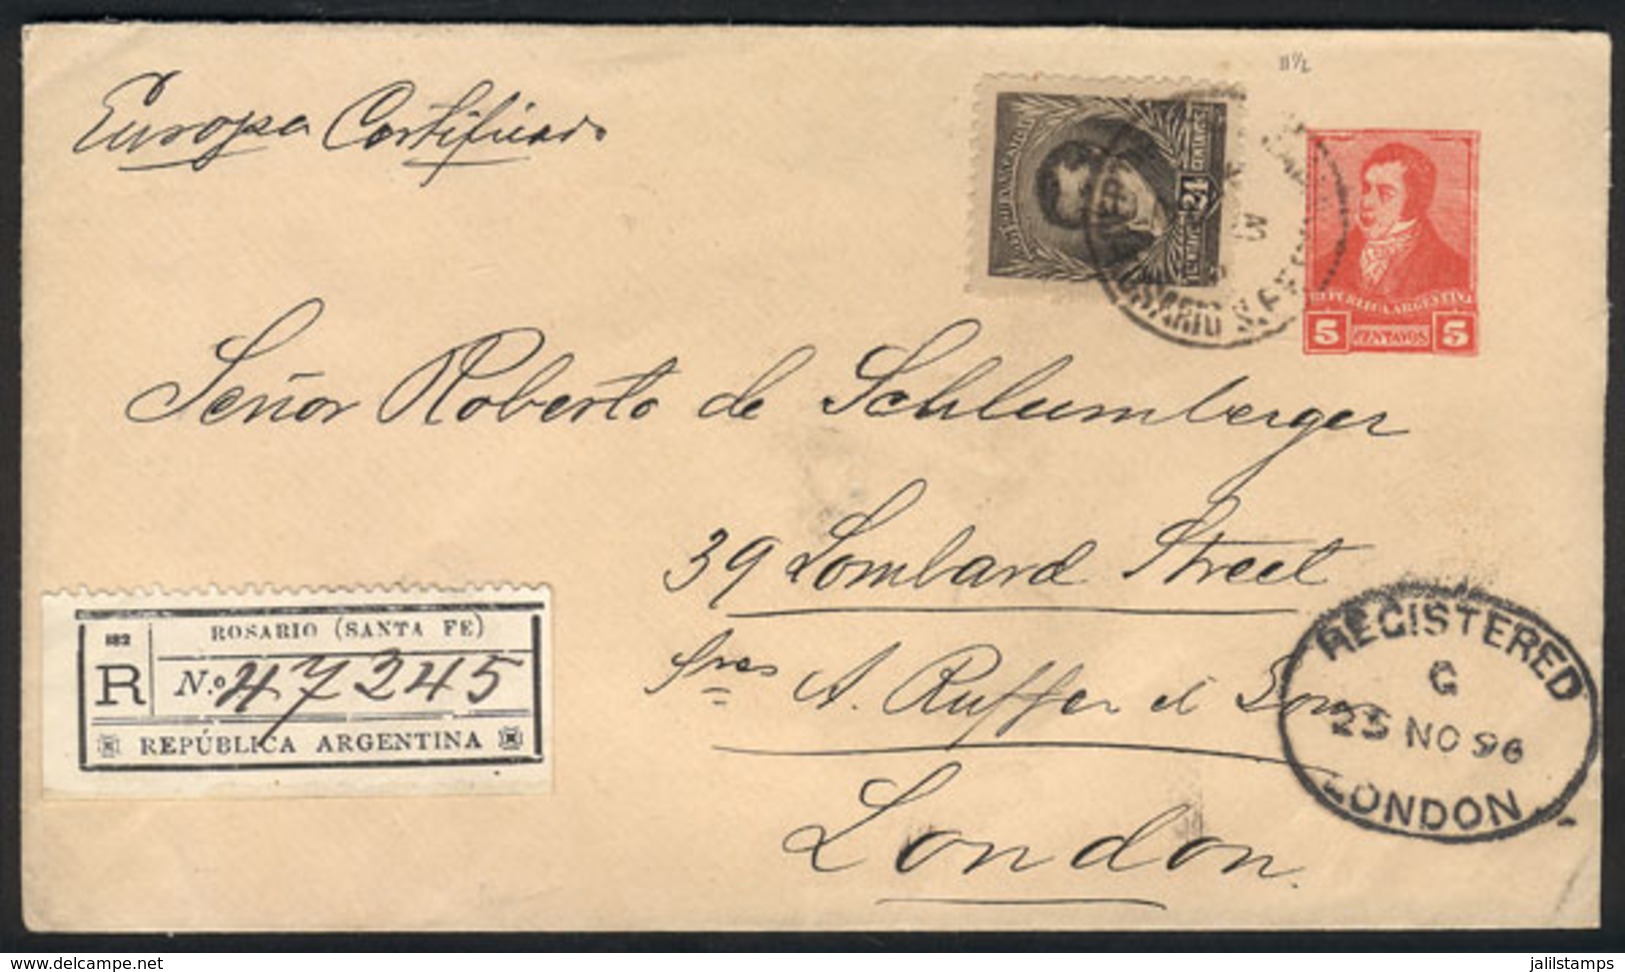 11½
Europa Certificado
24
CENTAVOS
REPUBLICA ARGENTINA
5 CENTAVOS 5
ROSARIO S. FE
Señor Roberto de Schlumberger
39 Lombard Street
Sres A. Ruffer & Sons
London
182
R
ROSARIO (SANTA FE)
N.o 47245
REPÚBLICA ARGENTINA
REGISTERED
G
25 NO 96
LONDON
delcampe.net
jalilstamps